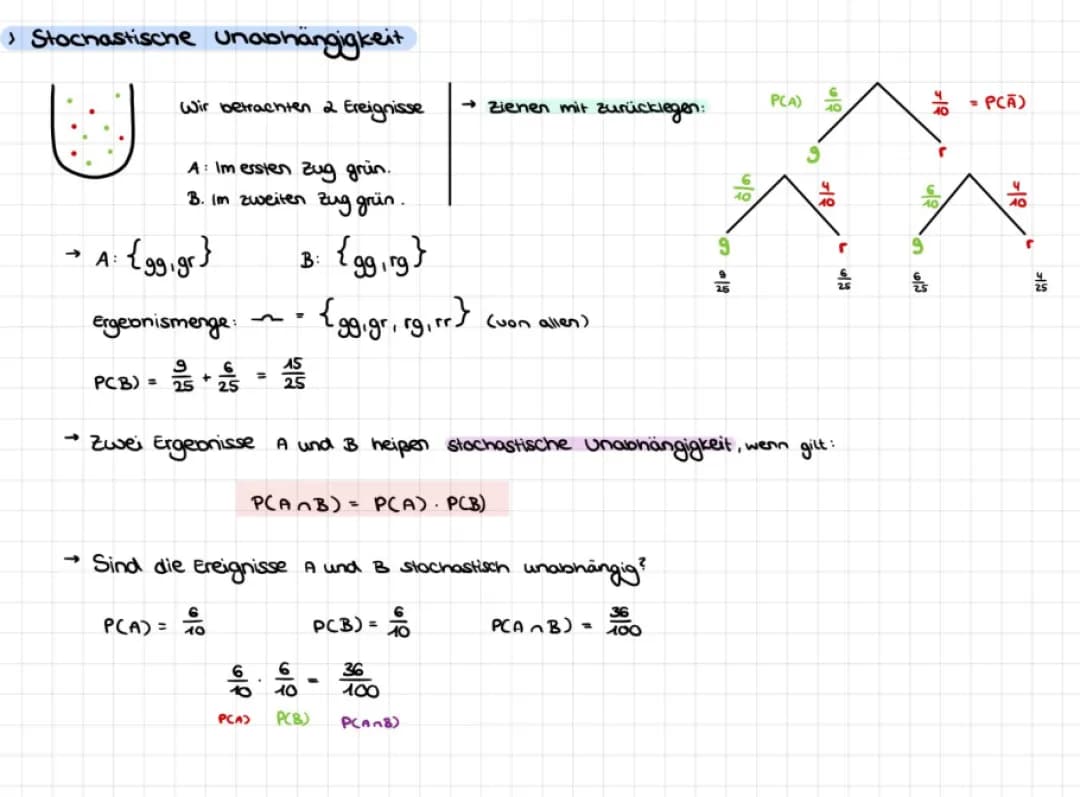 > Stochastische Unabhängigkeit
Wir betrachten 2 Ereignisse
A: Im ersten Zug grün.
B. Im zweiten Zug grün.
→ Ziehen mit zurücklegen:
P(A) 6/10 4/10 = P(Ā)
g r
6/10 4/10 6/10 4/10
g r g r
9/25 6/25 6/25 4/25
→ A: {gg,gr} B: {gg,rg}
Ergebnismenge: Ω = {gg,gr, rg,rr} (von allen)
P(B) = 9/25 + 6/25 = 15/25
→ Zwei Ergebnisse A und B heißen stochastische Unabhängigkeit, wenn gilt:
P(A∩B) = P(A) · P(B)
→ Sind die Ereignisse A und B stochastisch unabhängig?
P(A) = 6/10 P(B) = 6/10 P(A∩B) = 36/100
6/10 · 6/10 = 36/100
P(A) P(B) P(A∩B)